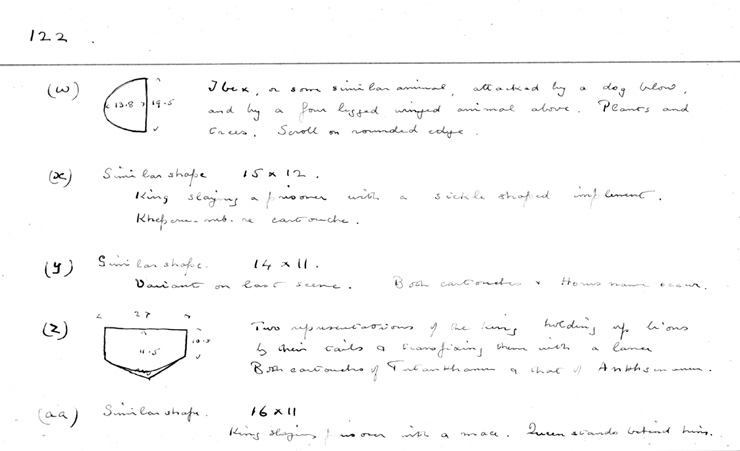 122.
(w) 13.8 19.5 Ibex, or some similar animal, attacked by a dog below,
and by a four legged winged animal above. Plants and
trees. Scroll on rounded edge.
(x) Similar shape 15 x 12.
King slaying a prisoner with a sickle shaped implement.
Kheperu-neb-re cartouche.
(y) Similar shape. 14 x 11.
Variant on last scene. Both cartouches & Horus name occur.
(z) 27 Two representations of the king holding up lions
4.5 by their tails & transfixing them with a lance
Both cartouches of Tutankhamen & that of
(aa) Similar shape. 16 x 11
King slaying prisoner with a mace. Queen stands behind him.